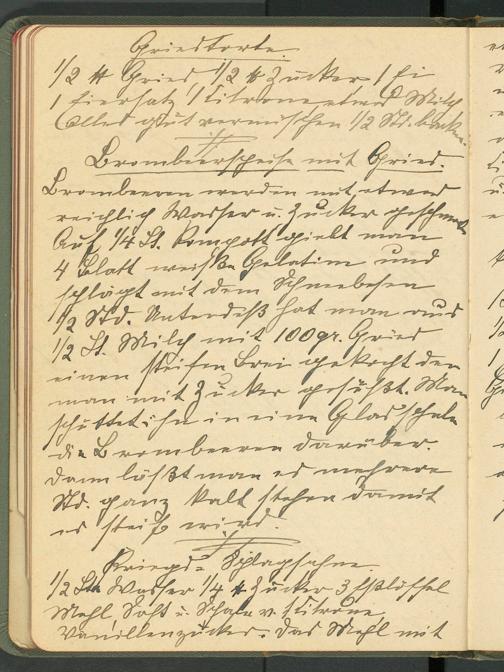 Griestorte.
1/2 ℔ Gries 1/2 ℔ Zucker 1 Ei
1 Eiersatz 1 Citrone etwas Milch
Alles gut vermischen 1/2 Std. backen.
Brombeerspeise mit Gries.
Brombeeren werden mit etwas
reichlich Wasser u. Zucker geschmort
Auf 1/4 Lt. Kompott giebt man
4 Blatt weiße Gelatine und
schlägt mit dem Schneebesen
1/2 Std. Unterdeß hat man aus
1/2 Lt. Milch mit 100 gr. Gries
einen steifen Brei gekocht den
man mit Zucker gesüßt. Man
schüttet ihn in eine Glasschale
die Brombeeren darüber.
Dann läßt man es mehrere
Std. ganz kalt stehen damit
es steif wird.
Kriegs-Schlagsahne.
1/2 Ltr Wasser 1/4 ℔ Zucker 3 Eßlöffel
Mehl, Saft u. Schale v. 1 Citrone
Vanillenzucker. Das Mehl mit